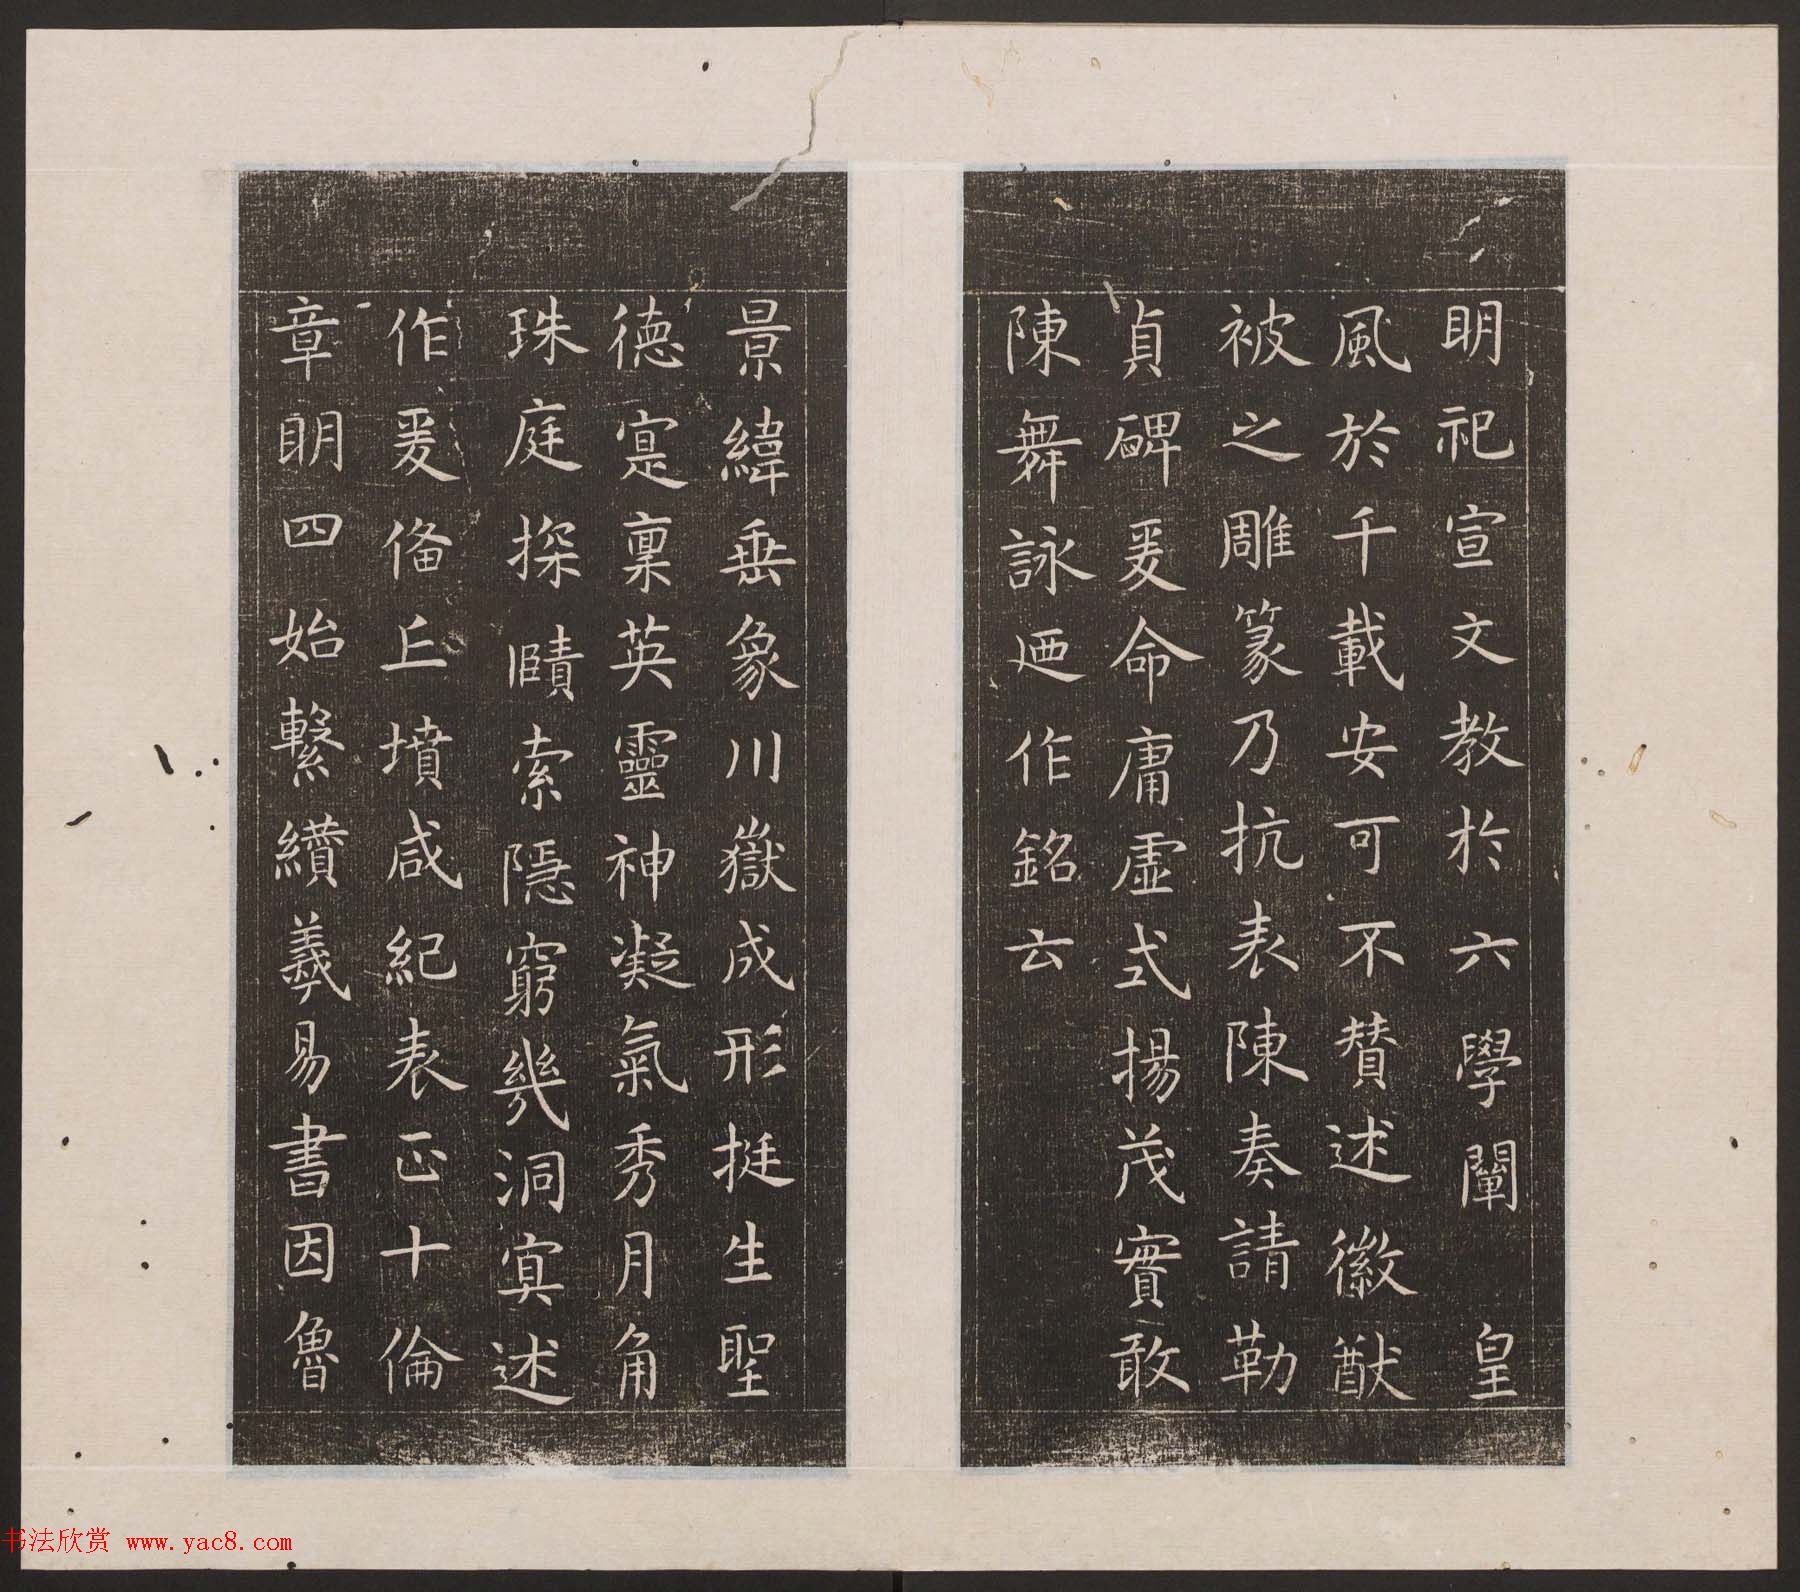 明祀宣文教於六學闡　皇
風於千載安可不贊述徽猷
被之雕篆乃抗表陳奏請勒
貞碑爰命庸虛式揚茂實敢
陳舞詠迺作銘云
景緯垂象川嶽成形挺生聖
德寔稟英靈神凝氣秀月角
珠庭探賾索隱窮幾洞冥述
作爰俻丘墳咸紀表正十倫
章明四始繫纘羲易書因魯
书法欣赏 www.yac8.com